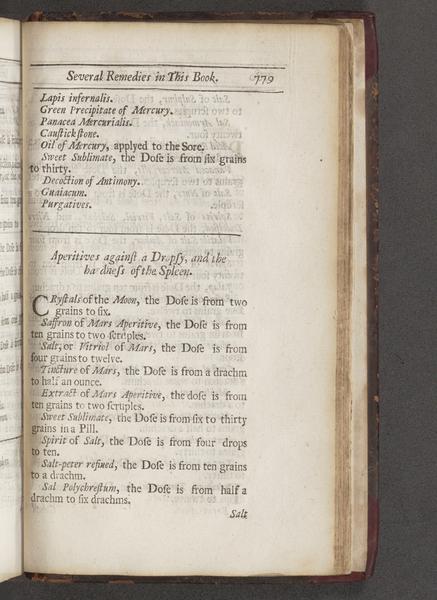 Several Remedies in This Book. 779
Lapis infernalis.
Green Precipitate of Mercury.
Panacea Mercurialis.
Cauſtick ſtone.
Oil of Mercury, applyed to the Sore.
Sweet Sublimate, the Doſe is from ſix grains
to thirty.
Decoction of Antimony.
Guaiacum.
Purgatives.
Aperitives againſt a Dropſy, and the
hardneſs of the Spleen.
CRyſtals of the Moon, the Doſe is from two
grains to ſix.
Saffron of Mars Aperitive, the Doſe is from
ten grains to two ſcruples.
Salt, or Vitriol of Mars, the Doſe is from
four grains to twelve.
Tincture of Mars, the Doſe is from a drachm
to half an ounce.
Extract of Mars Aperitive, the doſe is from
ten grains to two ſcruples.
Sweet Sublimate, the Doſe is from ſix to thirty
grains in a Pill.
Spirit of Salt, the Doſe is from four drops
to ten.
Salt-peter refined, the Doſe is from ten grains
to a drachm.
Sal Polychreſtum, the Doſe is from half a
drachm to ſix drachms.
Salt